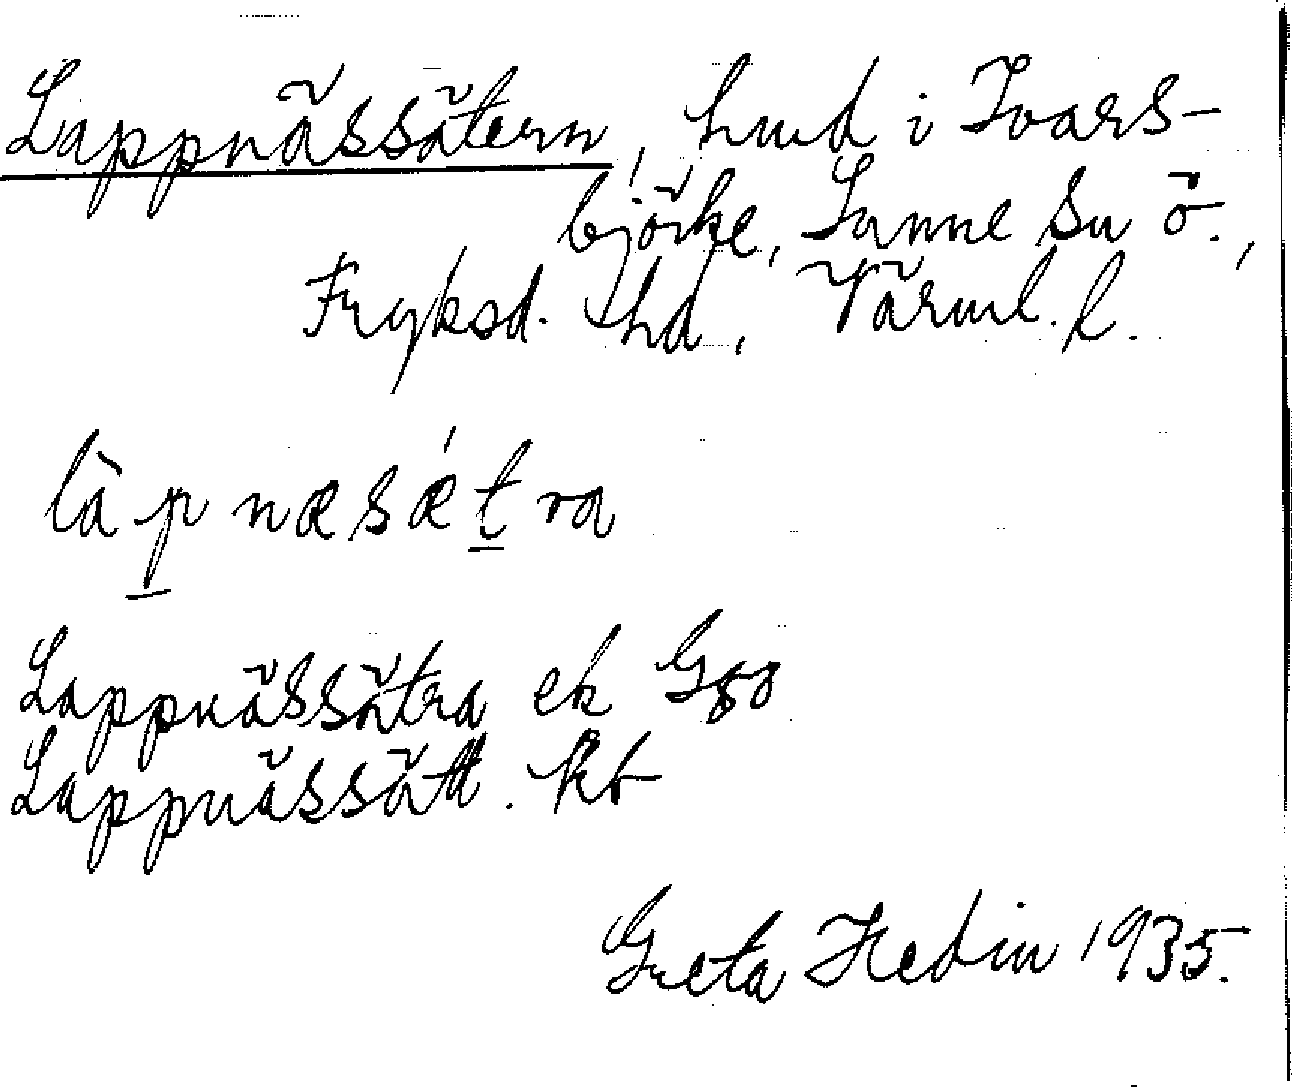 Lappnässätern, hmd i Ivars-
björke, Sunne sn ö.,
Fryksd. hd, Värml. l.
làp næsǽtra
Lappnässätra ek G80
Lappnässätt. kb
Greta Hedin 1935.